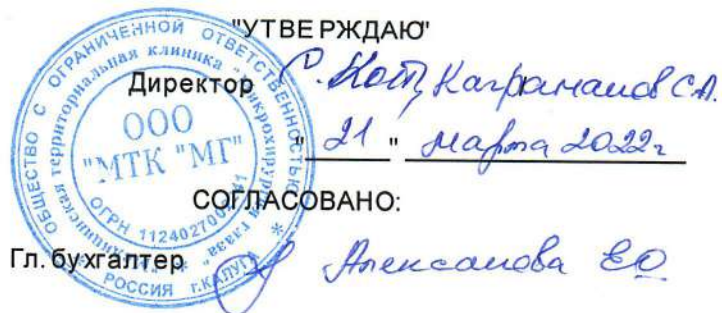 "УТВЕРЖДАЮ"
Директор Каграманов С.А.
"21" марта 2022г
СОГЛАСОВАНО:
Гл. бухгалтер ЕО
ОБЩЕСТВО С ОГРАНИЧЕННОЙ ОТВЕТСТВЕННОСТЬЮ
территориальная клиника "Микрохирургия глаза"
ООО
"МТК "МГ"
ОГРН
РОССИЯ г.КАЛУГА